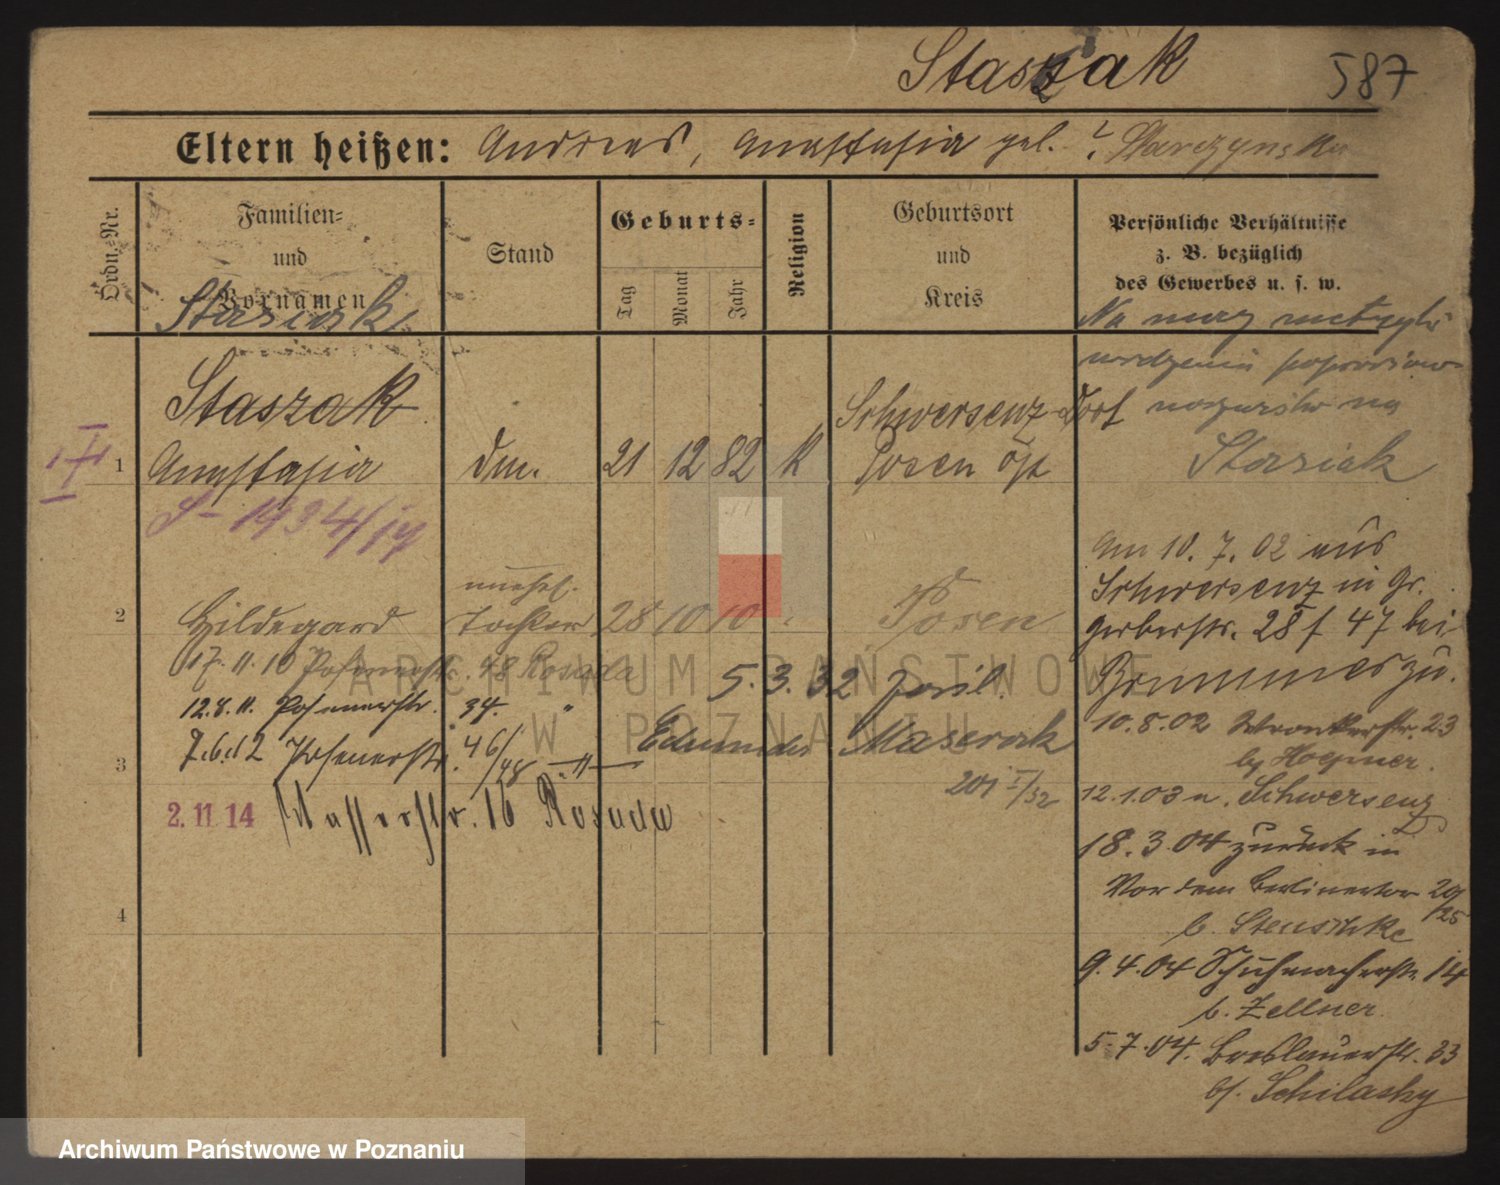 Staszak
587
Eltern heißen: Andreas, Anastasia geb. ? Starczynska
Ordn.-Nr.
Familien-
und
Vornamen
Stand
Geburts-
Tag
Monat
Jahr
Religion
Geburtsort
und
Kreis
Persönliche Verhältnisse
z. B. bezüglich
des Gewerbes u. s. w.
Stasiak
Na mocy metryki
urodzenia
na
Stasiak
1
Staszak
Anastasia
21 12 82 K
Schwersenz-Dorf
Posen Ost
S-1934/
Am 10. 7. 02 aus
Schwersenz in Gr.
Gerberstr. 28 f 47 bei
Brummer zu.
2
Hildegard
unehel.
Tochter
28 10 10
Posen
17. 11. 10 Posenerstr. 48 Rosada
12.8.11. Posenerstr. 34. "
3
7.6.12 Posenerstr. 46/48 — " —
5. 3. 32
Edmunda Maserak
201 I/32
2. 11 14 Wasserstr. 16 Rosada
4
10.8.02 Wronkerstr. 23
12.1.03 n. Schwersenz
18. 3. 04 zurück in
Vor dem Berlinertor 20/25
b.
9. 4. 04 Schuhmacherstr. 14
b. Zellner
5. 7. 04. Breslauerstr. 33
b. Schilasky
ARCHIWUM PAŃSTWOWE
W POZNANIU
Archiwum Państwowe w Poznaniu